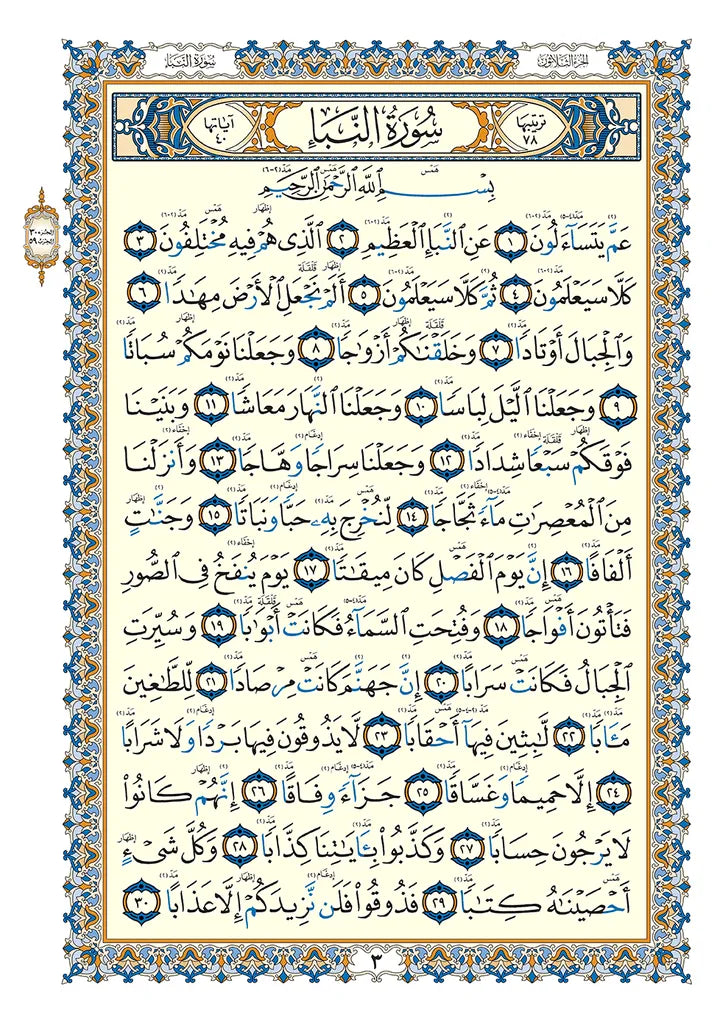 الجزء الثلاثون
سورة النبإ
ترتيبها ٧٨
سُورَةُ النَّبَإِ
آياتها ٤٠
بِسْمِ ٱللَّهِ ٱلرَّحْمَٰنِ ٱلرَّحِيمِ
عَمَّ يَتَسَآءَلُونَ ١ عَنِ ٱلنَّبَإِ ٱلْعَظِيمِ ٢ ٱلَّذِى هُمْ فِيهِ مُخْتَلِفُونَ ٣
كَلَّا سَيَعْلَمُونَ ٤ ثُمَّ كَلَّا سَيَعْلَمُونَ ٥ أَلَمْ نَجْعَلِ ٱلْأَرْضَ مِهَٰدًا ٦
وَٱلْجِبَالَ أَوْتَادًا ٧ وَخَلَقْنَٰكُمْ أَزْوَٰجًا ٨ وَجَعَلْنَا نَوْمَكُمْ سُبَاتًا
٩ وَجَعَلْنَا ٱلَّيْلَ لِبَاسًا ١٠ وَجَعَلْنَا ٱلنَّهَارَ مَعَاشًا ١١ وَبَنَيْنَا
فَوْقَكُمْ سَبْعًا شِدَادًا ١٢ وَجَعَلْنَا سِرَاجًا وَهَّاجًا ١٣ وَأَنزَلْنَا
مِنَ ٱلْمُعْصِرَٰتِ مَآءً ثَجَّاجًا ١٤ لِّنُخْرِجَ بِهِۦ حَبًّا وَنَبَاتًا ١٥ وَجَنَّٰتٍ
أَلْفَافًا ١٦ إِنَّ يَوْمَ ٱلْفَصْلِ كَانَ مِيقَٰتًا ١٧ يَوْمَ يُنفَخُ فِى ٱلصُّورِ
فَتَأْتُونَ أَفْوَاجًا ١٨ وَفُتِحَتِ ٱلسَّمَآءُ فَكَانَتْ أَبْوَٰبًا ١٩ وَسُيِّرَتِ
ٱلْجِبَالُ فَكَانَتْ سَرَابًا ٢٠ إِنَّ جَهَنَّمَ كَانَتْ مِرْصَادًا ٢١ لِّلطَّٰغِينَ
مَـَٔابًا ٢٢ لَّٰبِثِينَ فِيهَآ أَحْقَابًا ٢٣ لَّا يَذُوقُونَ فِيهَا بَرْدًا وَلَا شَرَابًا
٢٤ إِلَّا حَمِيمًا وَغَسَّاقًا ٢٥ جَزَآءً وِفَاقًا ٢٦ إِنَّهُمْ كَانُوا۟
لَا يَرْجُونَ حِسَابًا ٢٧ وَكَذَّبُوا۟ بِـَٔايَٰتِنَا كِذَّابًا ٢٨ وَكُلَّ شَىْءٍ
أَحْصَيْنَٰهُ كِتَٰبًا ٢٩ فَذُوقُوا۟ فَلَن نَّزِيدَكُمْ إِلَّا عَذَابًا ٣٠
الجزء ٣٠
الحزب ٥٩
٣